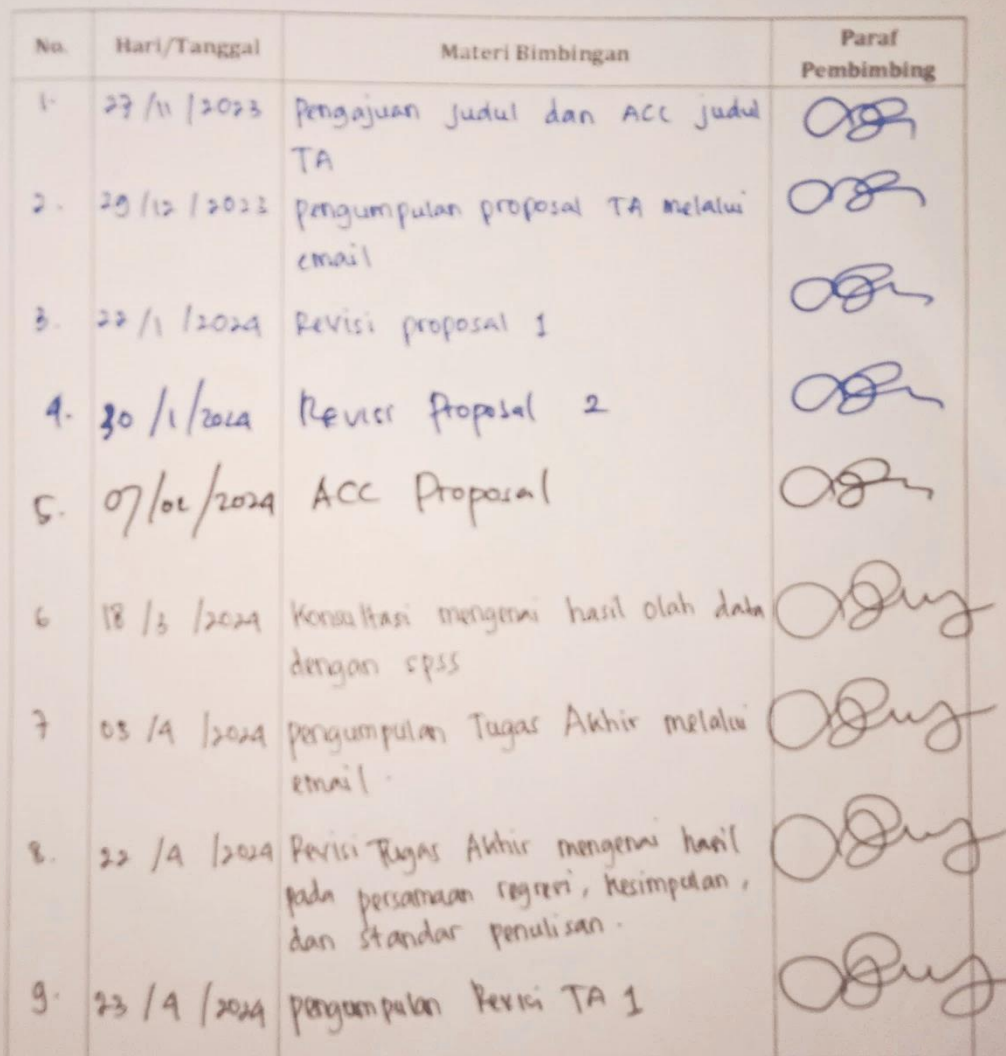 No. Hari/Tanggal Materi Bimbingan Paraf
Pembimbing
1. 27/11/2023 Pengajuan Judul dan ACC judul
TA
2. 29/12/2023 pengumpulan proposal TA melalui
email
3. 22/1/2024 Revisi proposal 1
4. 30/1/2024 Revisi Proposal 2
5. 07/02/2024 ACC Proposal
6 18/3/2024 Konsultasi mengenai hasil olah data
dengan spss
7 03/4/2024 pengumpulan Tugas Akhir melalui
email.
8. 22/4/2024 Revisi Tugas Akhir mengenai hasil
pada persamaan regresi, kesimpulan,
dan standar penulisan.
9. 23/4/2024 pengumpulan Revisi TA 1